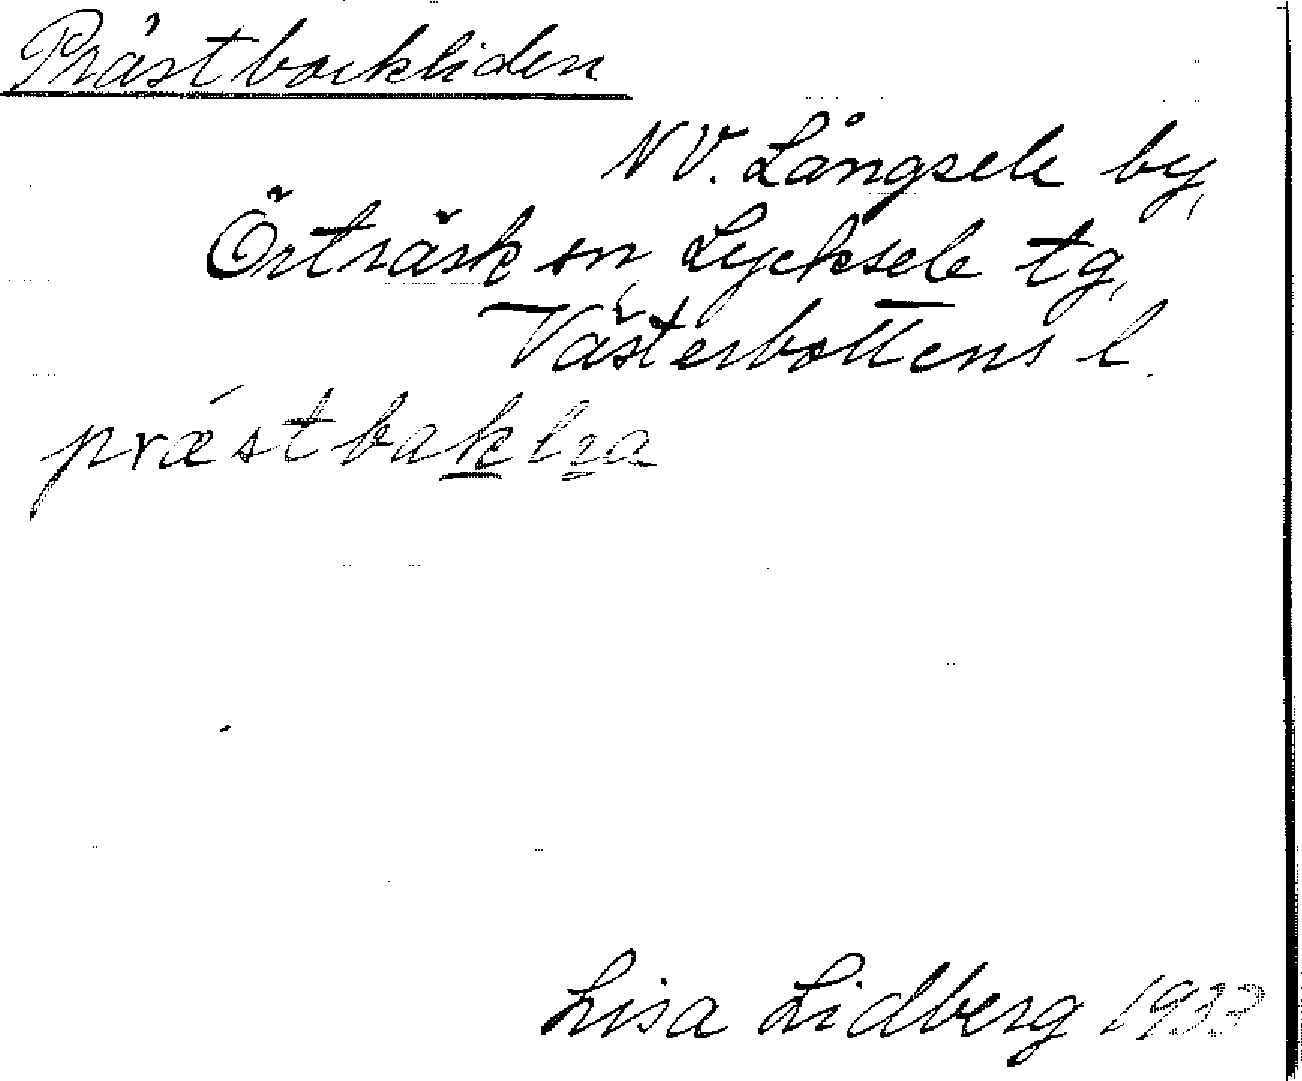 Prästbockliden
NV. Långsele by,
Örträsk sn, Lycksele tg,
Västerbottens l.
Lisa Lidberg 1933